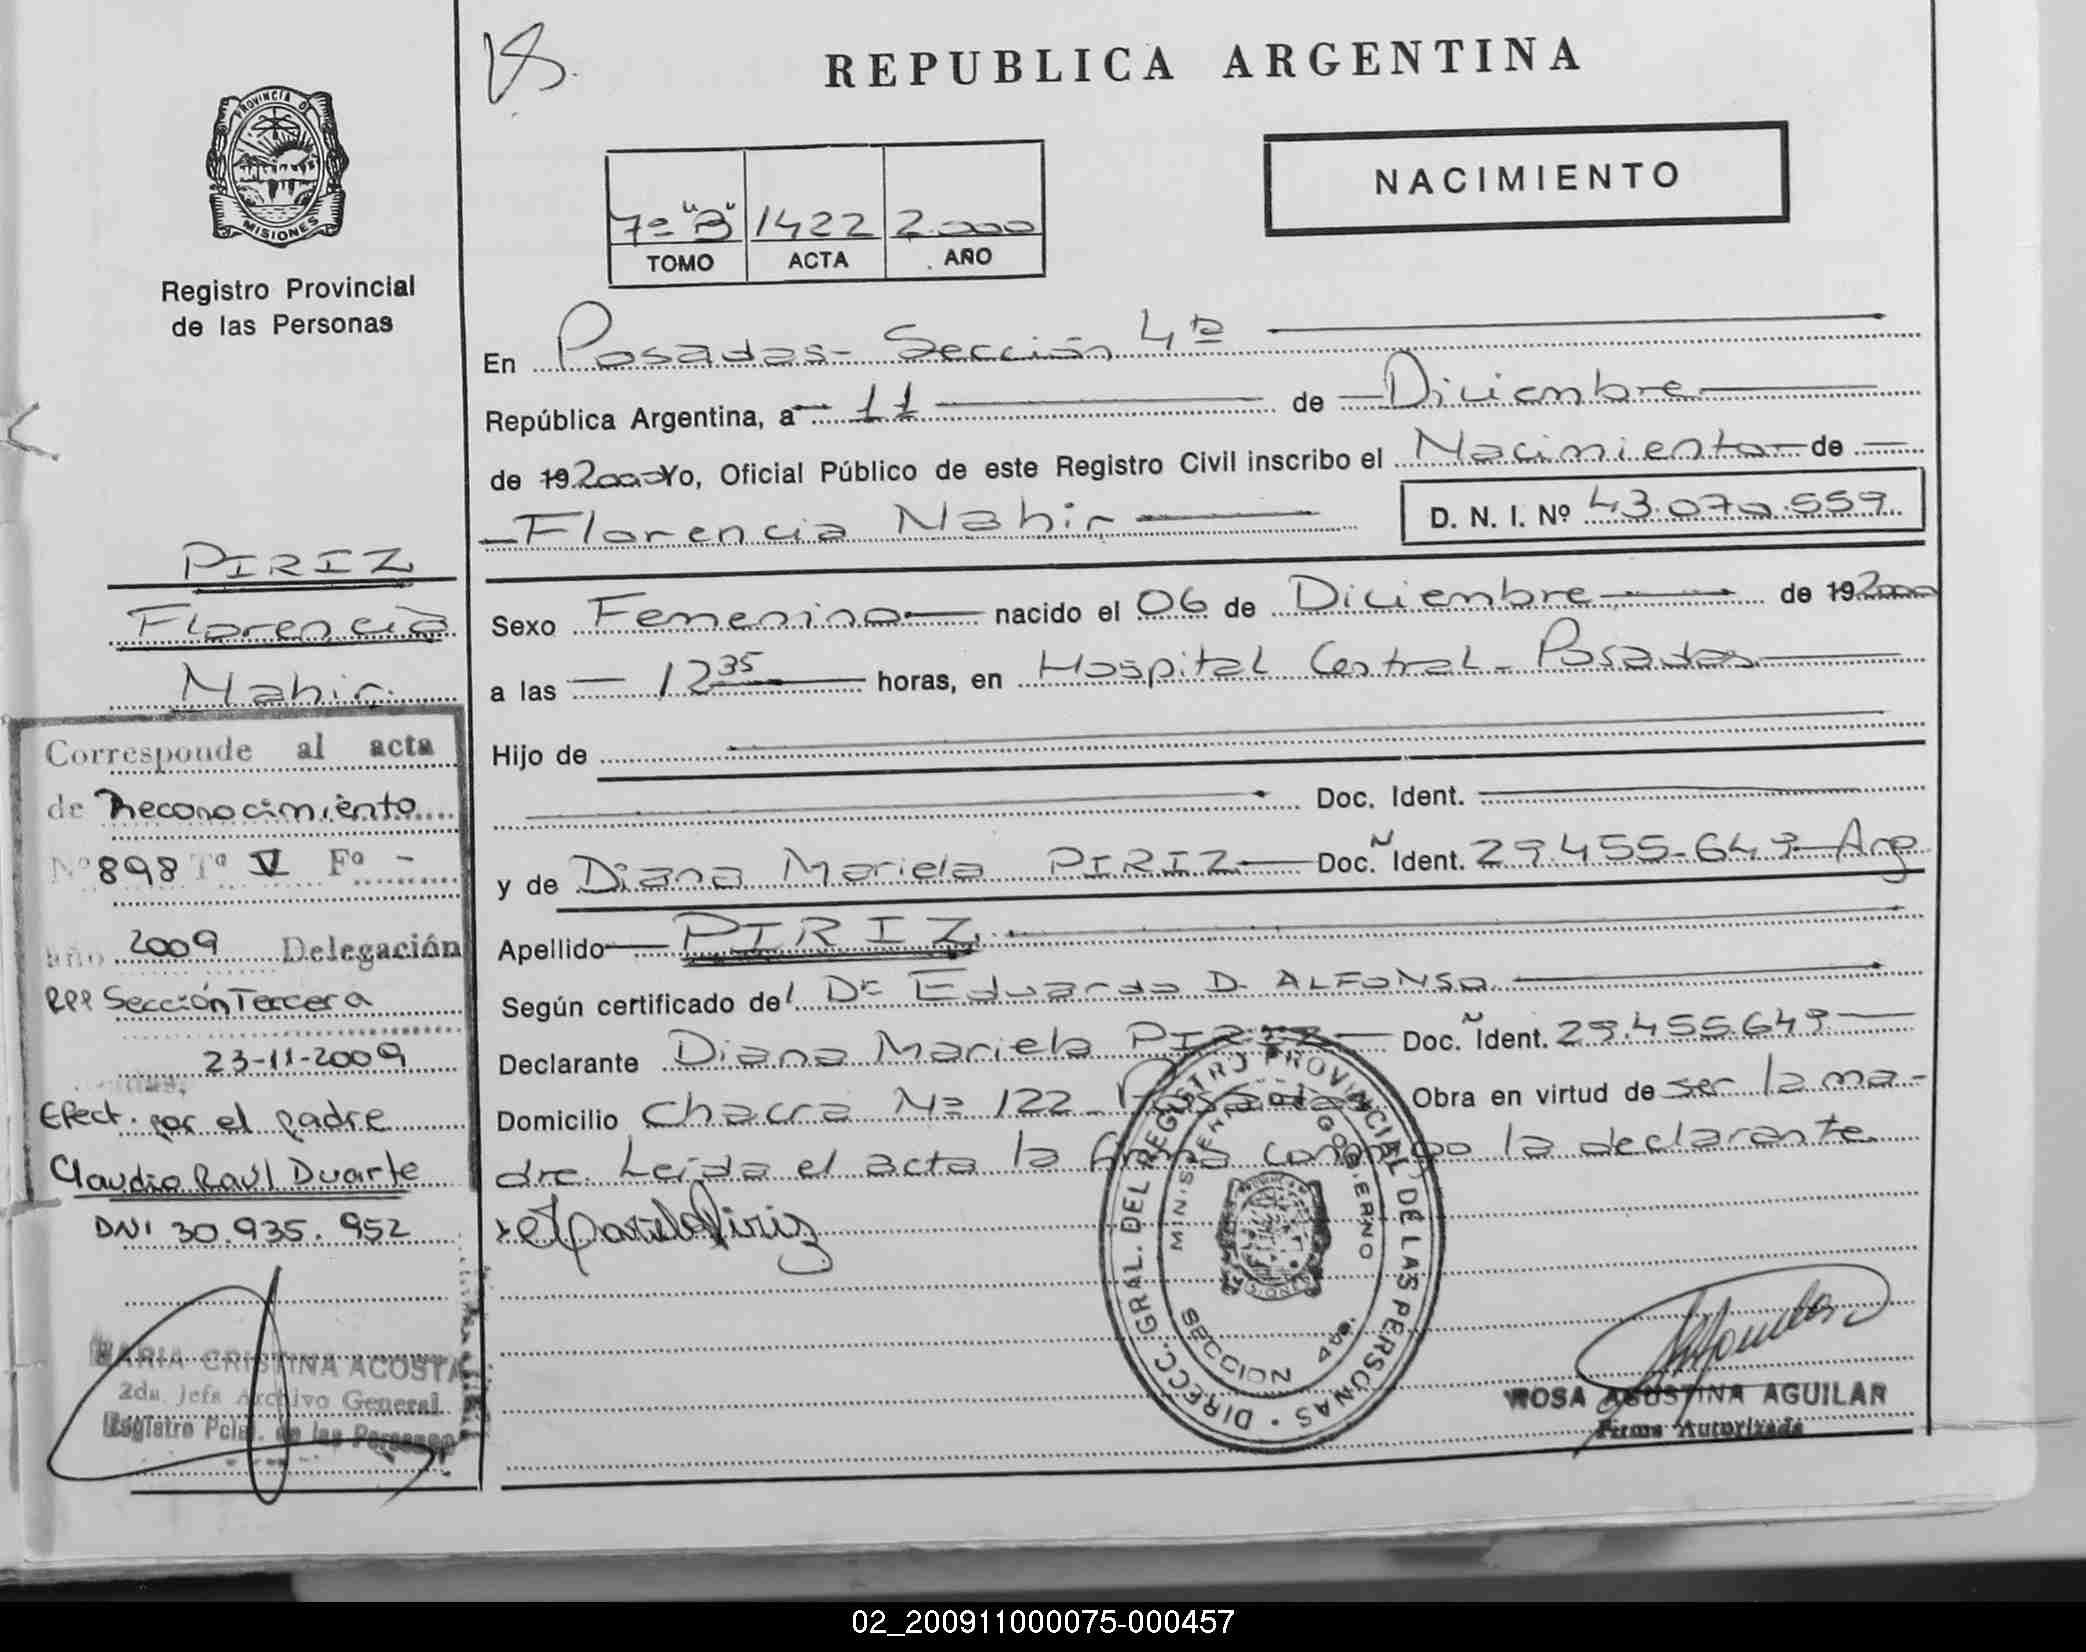 REPUBLICA ARGENTINA
PROVINCIA DE
MISIONES
Registro Provincial
de las Personas
NACIMIENTO
7º "B" 1422 2.000
TOMO ACTA AÑO
En Posadas - Sección 4ª
República Argentina, a 11 de Diciembre
de 19 2000 Yo, Oficial Público de este Registro Civil inscribo el Nacimiento de
Florencia Nahir
D. N. I. Nº 43.070.559
Sexo Femenino nacido el 06 de Diciembre de 19 2000
a las 12 35 horas, en Hospital Central - Posadas
Hijo de
Doc. Ident.
y de Diana Mariela PIRIZ Doc. Ñ Ident. 29.455.649 - Arg
Apellido PIRIZ
Según certificado del Dr Eduardo D. ALFONSO
Declarante Diana Mariela PIRIZ Doc. Ñ Ident. 29.455.649
Domicilio Chacra Nº 122 - Posadas Obra en virtud de ser la ma-
dre. Leída el acta la firma conmigo la declarante.
DIRECC. GRAL. DEL REGISTRO PROVINCIAL DE LAS PERSONAS
MINISTERIO GOBIERNO
SECCION 4ta.
ROSA AGUSTINA AGUILAR
Firma Autorizada
PIRIZ
Florencia
Nahir
Corresponde al acta
de Reconocimiento
Nº 898 Tº V Fº -
año 2009 Delegación
RPP Sección Tercera
23-11-2009
Efect. por el padre
Claudio Raúl Duarte
DNI 30.935.952
MARIA CRISTINA ACOSTA
2da. Jefa Archivo General
Registro Pcial. de las Personas
02_200911000075-000457